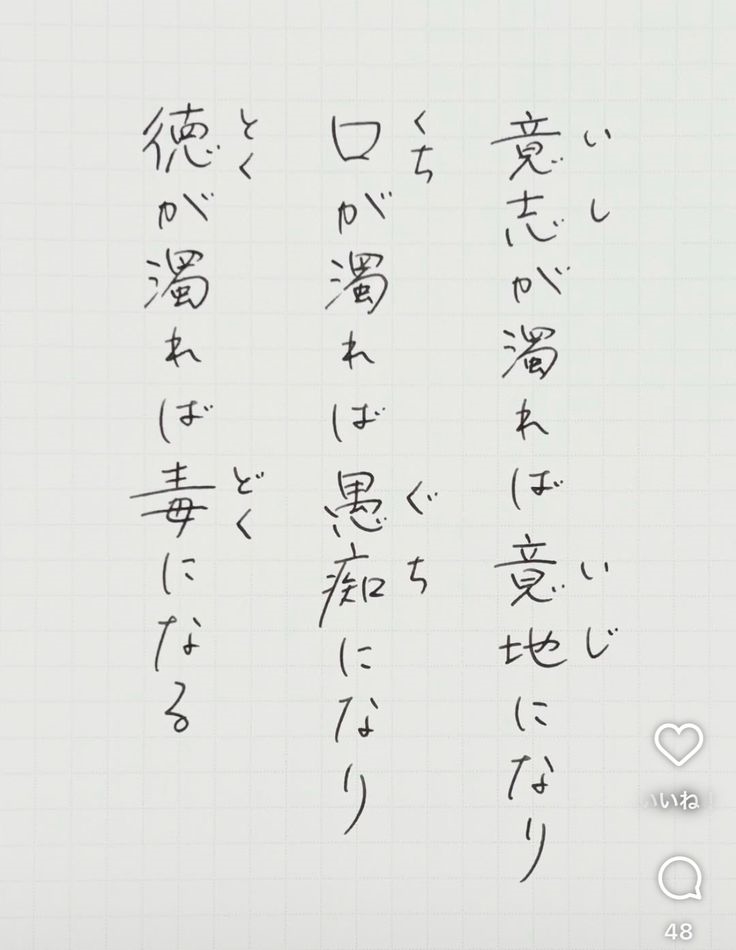 意志が濁れば意地になり
いし いじ
口が濁れば愚痴になり
くち ぐち
徳が濁れば毒になる
とく どく
いいね
48